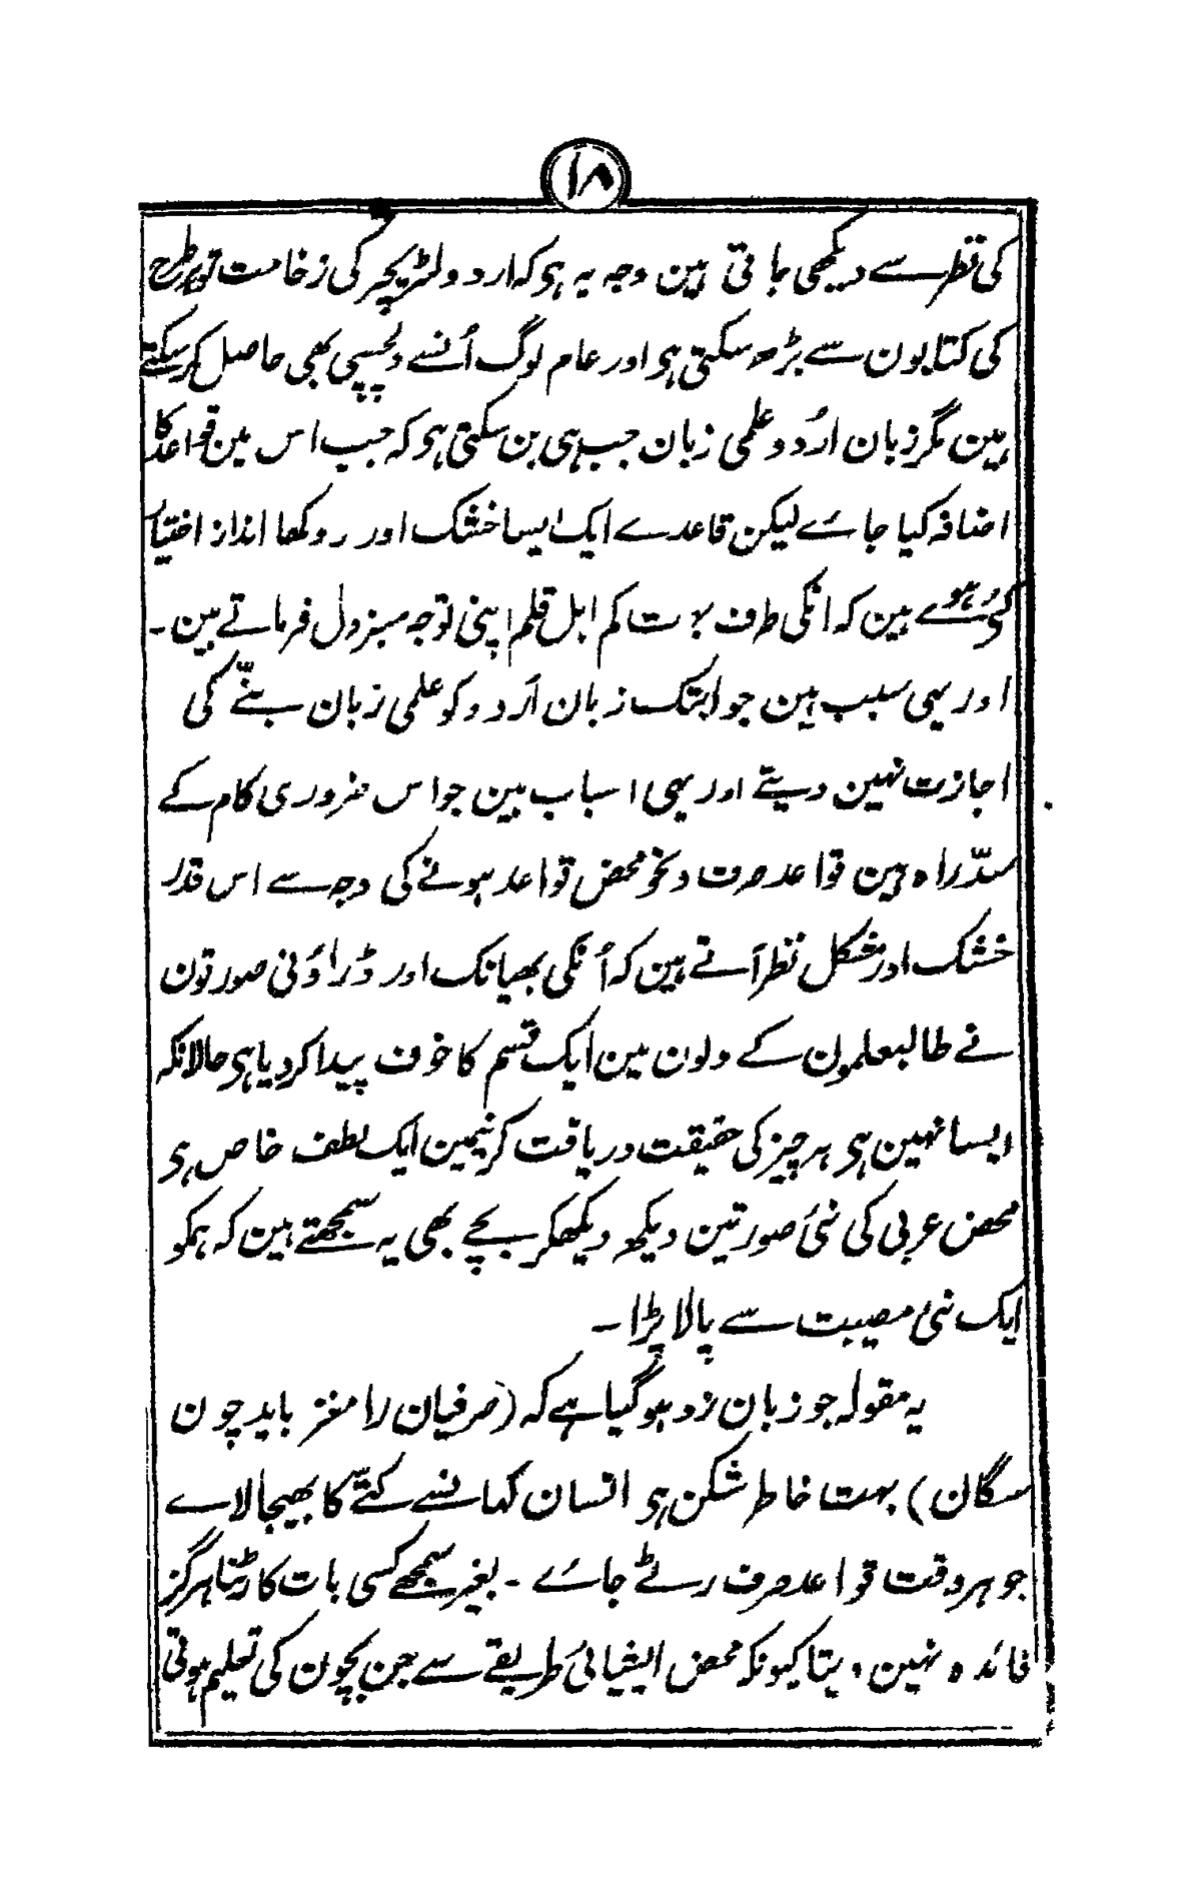 ۱۸
کی نظر سے دیکھی جاتی ہین وجہ یہ ہی کہ اردو لٹریچر کی زخامت تو ہر طرح
کی کتابون سے بڑھ سکتی ہی اور عام لوگ اُنسے دلچسپی بھی حاصل کر سکتے
ہین مگر زبان اُردو علمی زبان جب ہی بن سکتی ہی کہ جب اس مین قواعد کا
اضافہ کیا جائے لیکن قاعدے ایک ایسا خشک اور روکھا انداز اختیار
کئے ہوے ہین کہ انکی طرف بہت کم اہل قلم اپنی توجہ مبزول فرماتے ہین۔
اور یہی سبب ہین جو ابتک زبان اُردو کو علمی زبان بننے کی
اجازت نہین دیتے اور یہی اسباب ہین جو اس ضروری کام کے
سدّراہ ہین قواعد صرف و نحو محض قواعد ہونے کی وجہ سے اس قدر
خشک اور مشکل نظر آتے ہین کہ اُنکی بھیانک اور ڈراؤنی صورتون
نے طالبعلمون کے دلون مین ایک قسم کا خوف پیدا کر دیا ہی حالانکہ
ایسا نہین ہی ہر چیز کی حقیقت دریافت کرنیمین ایک لطف خاص ہی
محض عربی کی نئی صورتین دیکھ دیکھکر بچے بھی یہ سمجھتے ہین کہ ہمکو
ایک نئی مصیبت سے پالا پڑا۔
یہ مقولہ جو زبان زد ہو گیا ہے کہ (صرفیان را مغز باید چون
سگان) بہت خاطر شکن ہی انسان کہانسے کتّے کا بھیجا لاے
جو ہر وقت قواعد صرف رٹے جائے ۔ بغیر سمجھے کسی بات کا رٹنا ہرگز
فائدہ نہین دیتا کیونکہ محض ایشیائی طریقے سے جن بچون کی تعلیم ہوتی